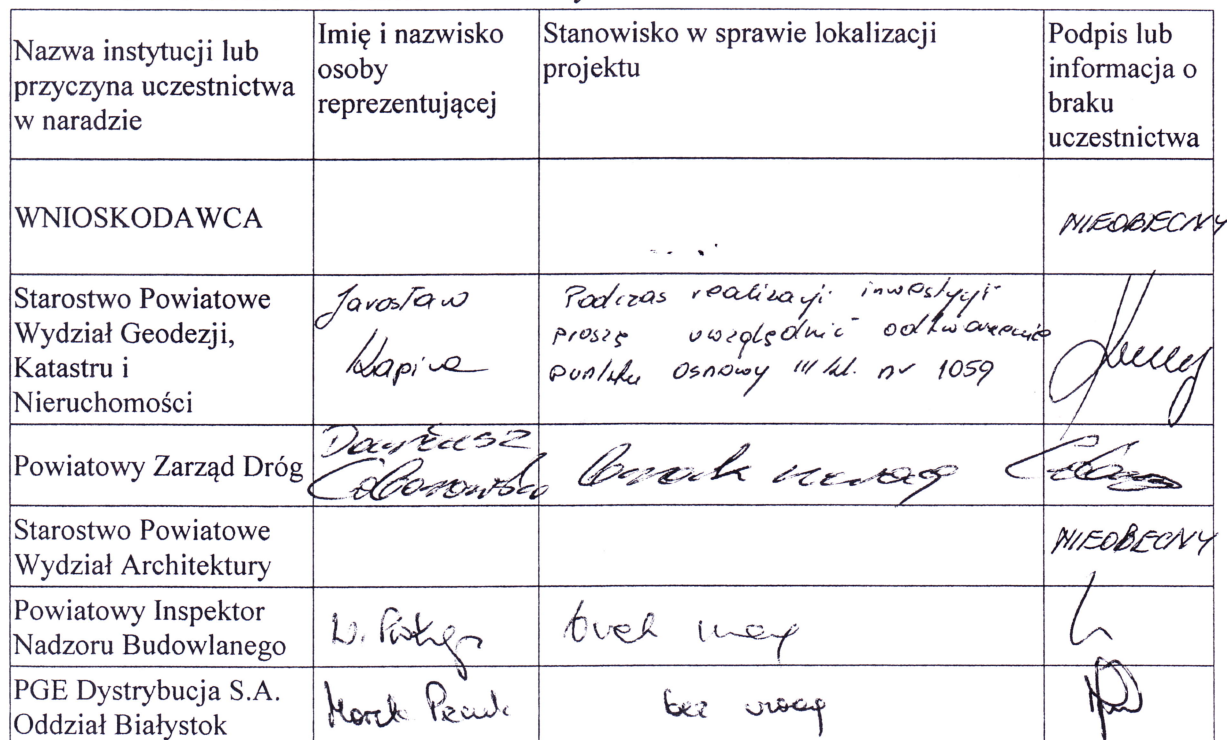 Nazwa instytucji lub
przyczyna uczestnictwa
w naradzie
Imię i nazwisko
osoby
reprezentującej
Stanowisko w sprawie lokalizacji
projektu
Podpis lub
informacja o
braku
uczestnictwa
WNIOSKODAWCA
NIEOBECNY
Starostwo Powiatowe
Wydział Geodezji,
Katastru i
Nieruchomości
Jarosław
Podczas realizacji inwestycji
proszę uwzględnić odtworzenie
punktu osnowy III kl. nr 1059
Powiatowy Zarząd Dróg
Dariusz
brak uwag
Starostwo Powiatowe
Wydział Architektury
NIEOBECNY
Powiatowy Inspektor
Nadzoru Budowlanego
brak uwag
PGE Dystrybucja S.A.
Oddział Białystok
Marek
bez uwag